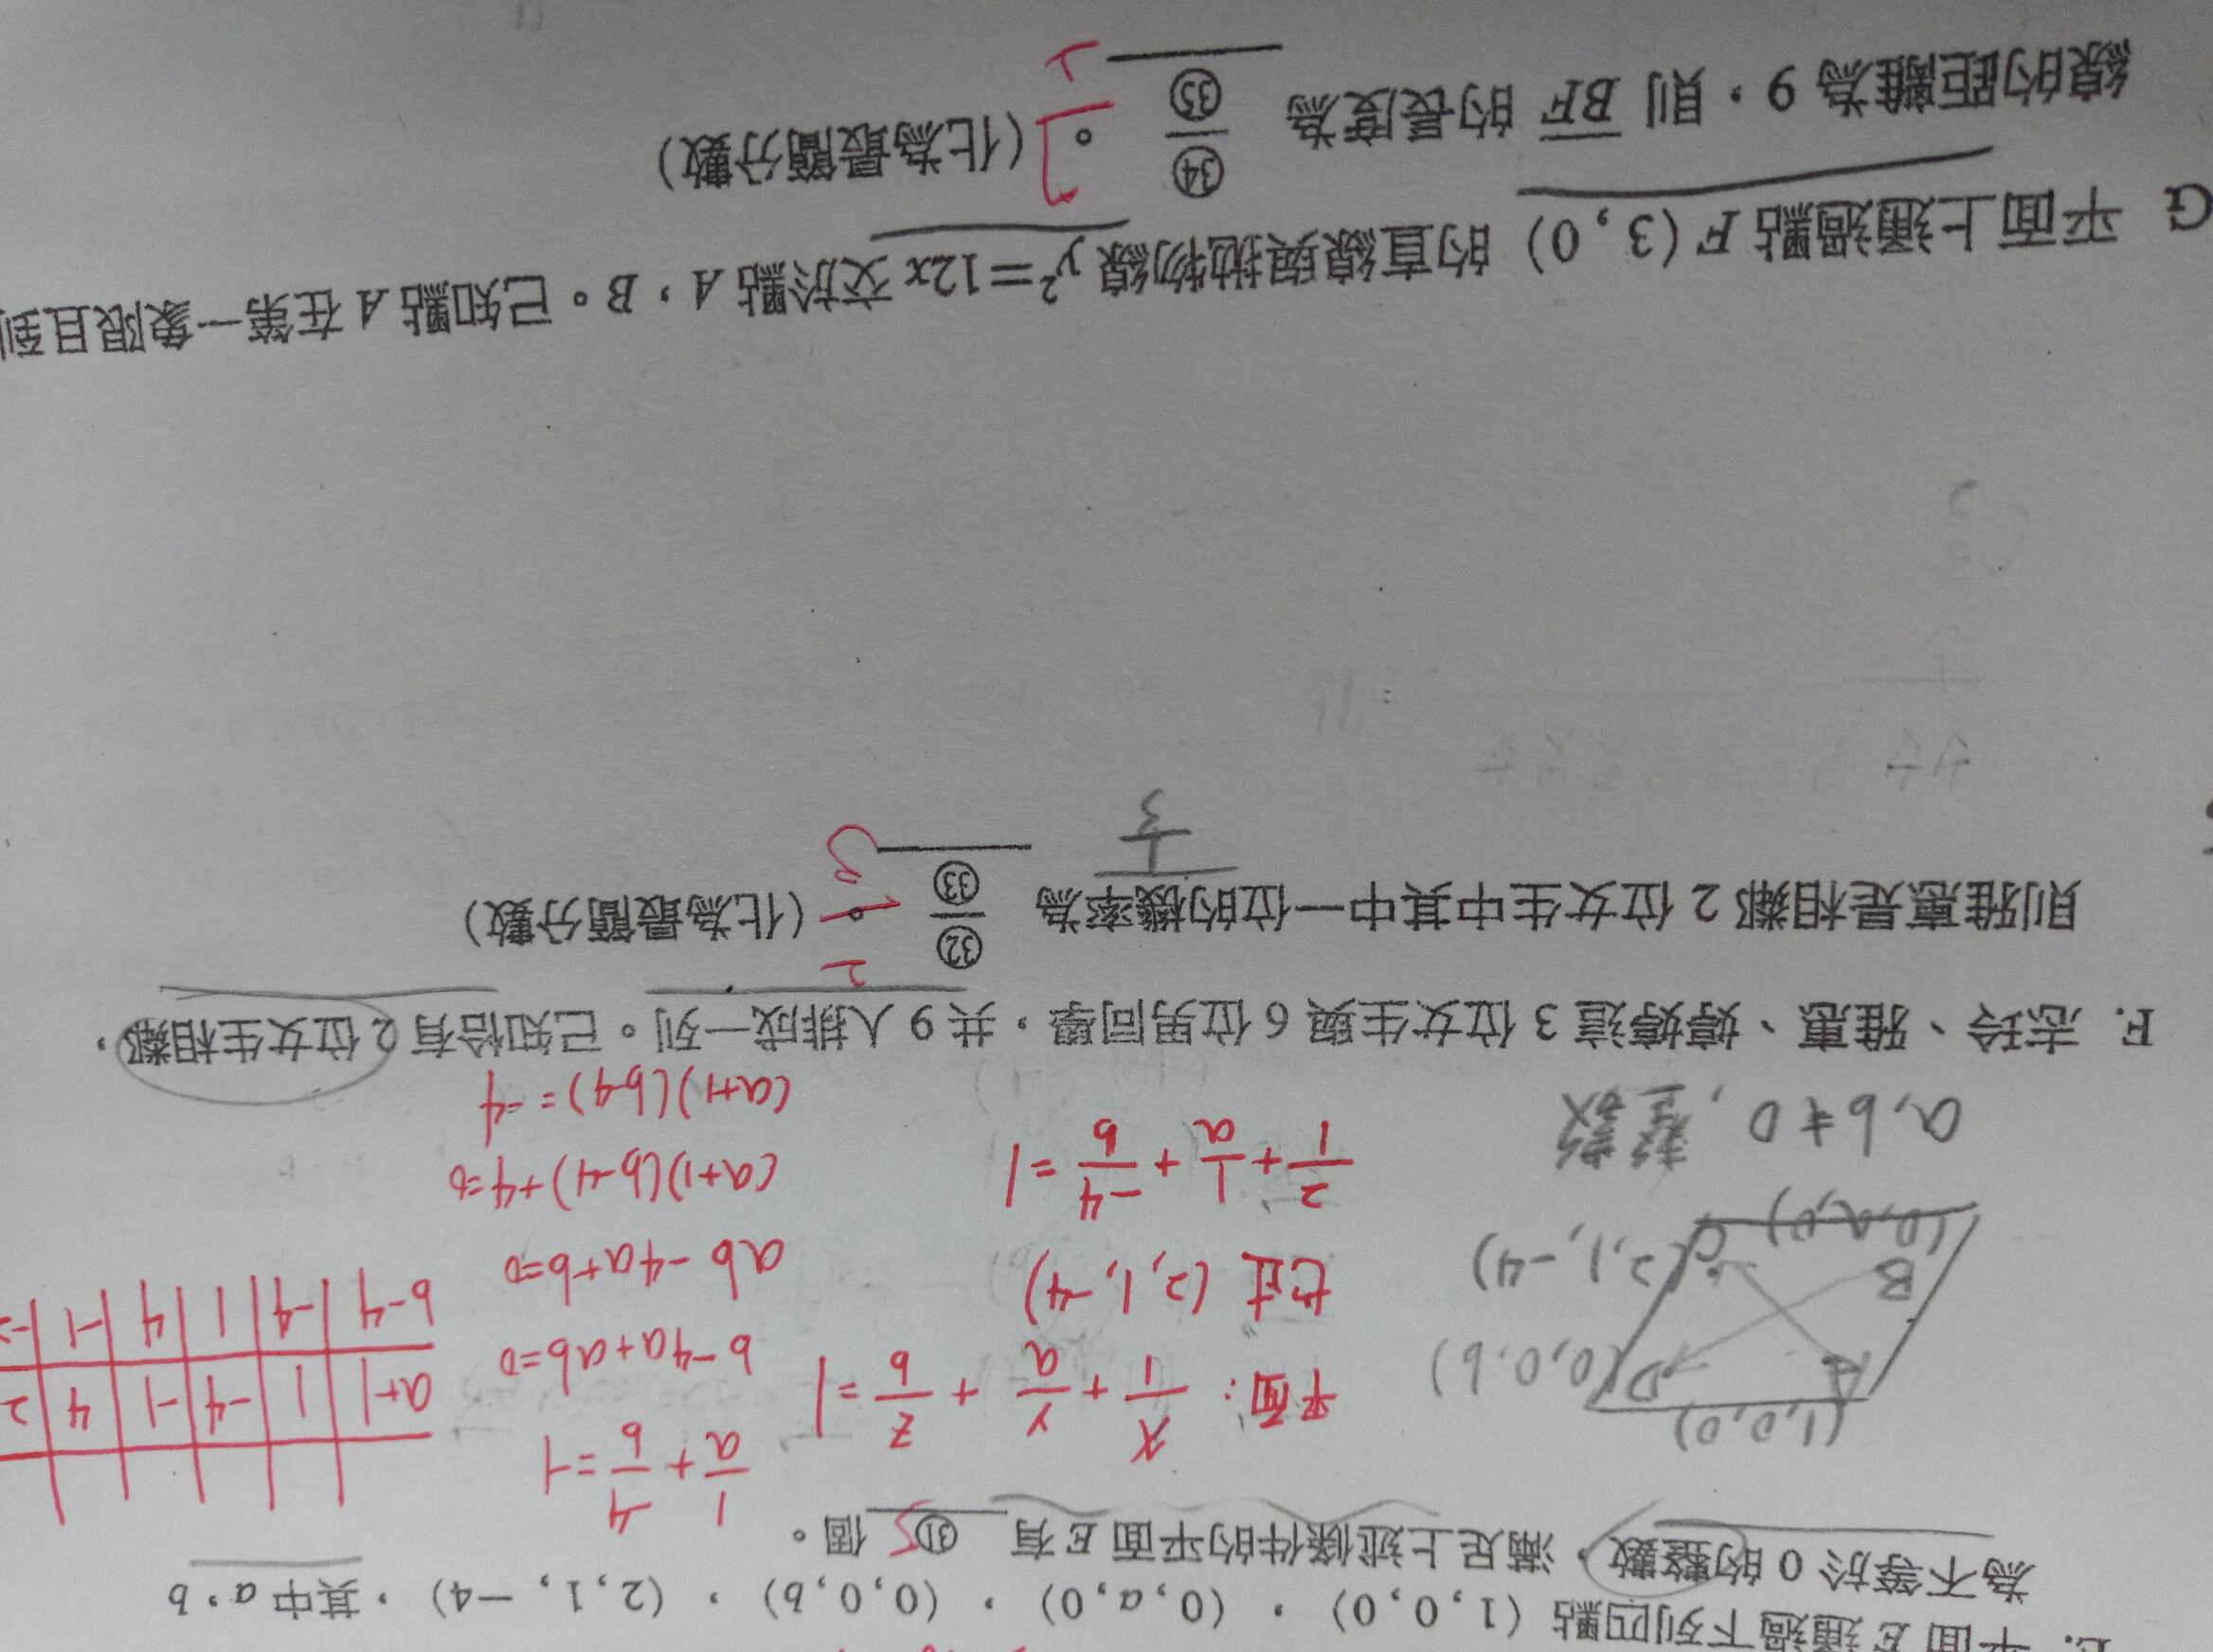 E. 平面 E 通過下列四點 (1, 0, 0)、(0, a, 0)、(0, 0, b)、(2, 1, −4),其中 a、b
為不等於 0 的整數,滿足上述條件的平面 E 有 ㉛ 個。
5
(1,0,0)
A
D (0,0,b)
B
(0,a,0)
C (2,1,-4)
a, b ≠ 0 , 整數
平面: x/1 + y/a + z/b = 1
(2, 1, -4)
2/1 + 1/a + -4/b = 1
1/a + -4/b = -1
b-4a+ab=0
ab-4a+b=0
(a+1)(b-4)+4=0
(a+1)(b-4)=-4
a+1 | 1 | -4 | -1 | 4 | 2
b-4 | -4 | 1 | 4 | -1 | -2
F. 志玲、雅惠、婷婷這 3 位女生與 6 位男同學,共 9 人排成一列。已知恰有 2 位女生相鄰,
則雅惠是相鄰 2 位女生中其中一位的機率為 ㉜/㉝ 。(化為最簡分數)
2
3
1/3
G 平面上通過點 F (3, 0) 的直線與拋物線 y²=12x 交於點 A、B。已知點 A 在第一象限且到
線的距離為 9,則 BF 的長度為 ㉞/㉟ 。(化為最簡分數)